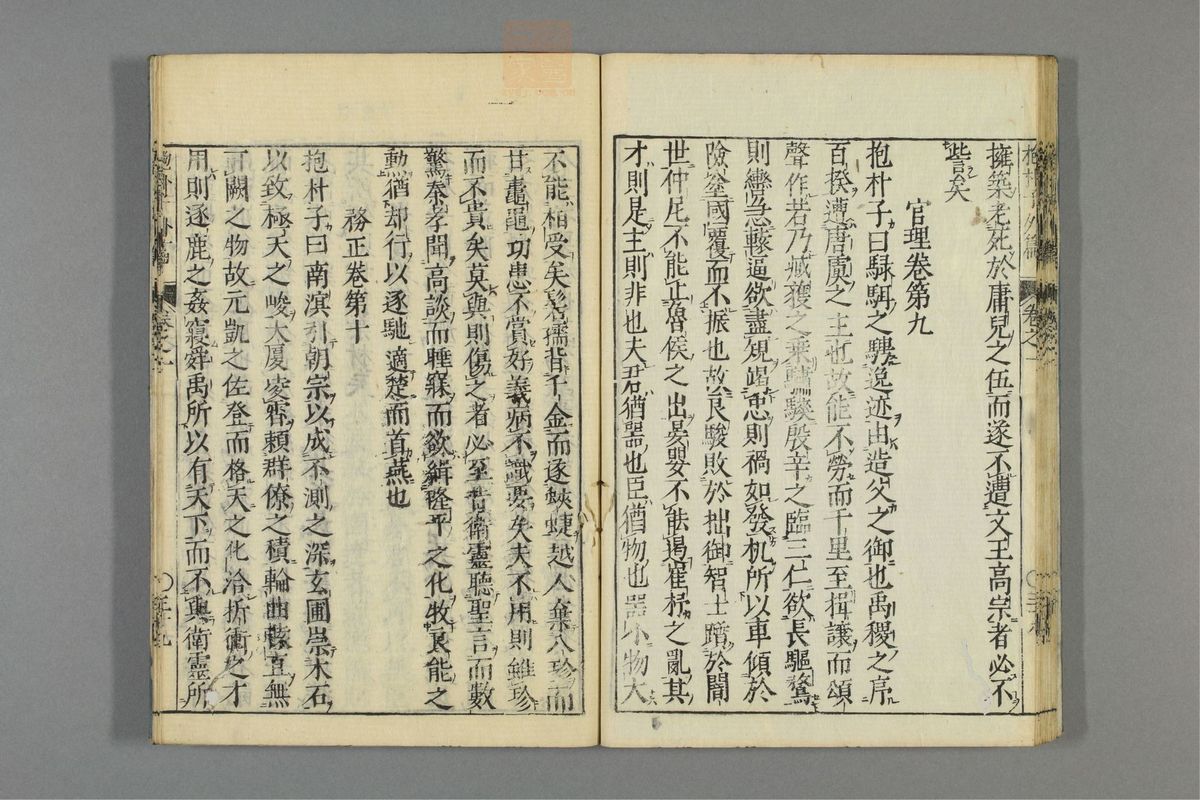 擁築老死於庸兒之伍而遂不遭文王高宗者必不
訾矣
官理卷第九
抱朴子曰騄駬之騁逸迹由造父之御也禹稷之序
百揆遭唐虞之主也故能不勞而千里至揖讓而頌
聲作若乃臧穫之乘驌驦殷辛之臨三仁欲長驅騖
則轡急轅逼欲盡規竭忠則禍如發机所以車傾於
險塗國覆而不振也故良駿敗於拙御智士躓於闇
世仲尼不能止魯侯之出晏嬰不能遏崔杼之亂其
才則是主則非也夫君猶器也臣猶物也器小物大
不能相受矣髫孺背千金而逐蛺蝶越人棄八珍而
甘鼃黽功患不賞好義病不識要矣夫不用則雖珍
而不貴矣莫與則傷之者必至昔衛靈聽聖言而數
驚秦孝聞高談而睡寐而欲緝隆平之化牧良能之
勲猶却行以逐馳適楚而首燕也
務正卷第十
抱朴子曰南溟引朝宗以成不測之深玄圃崇木石
以致極天之峻大厦凌霄賴群僚之積輪曲轅直無
可闕之物故元凱之佐登而格天之化洽折衝之才
用則逐鹿之姦寢舜禹所以有天下而不與衛靈所